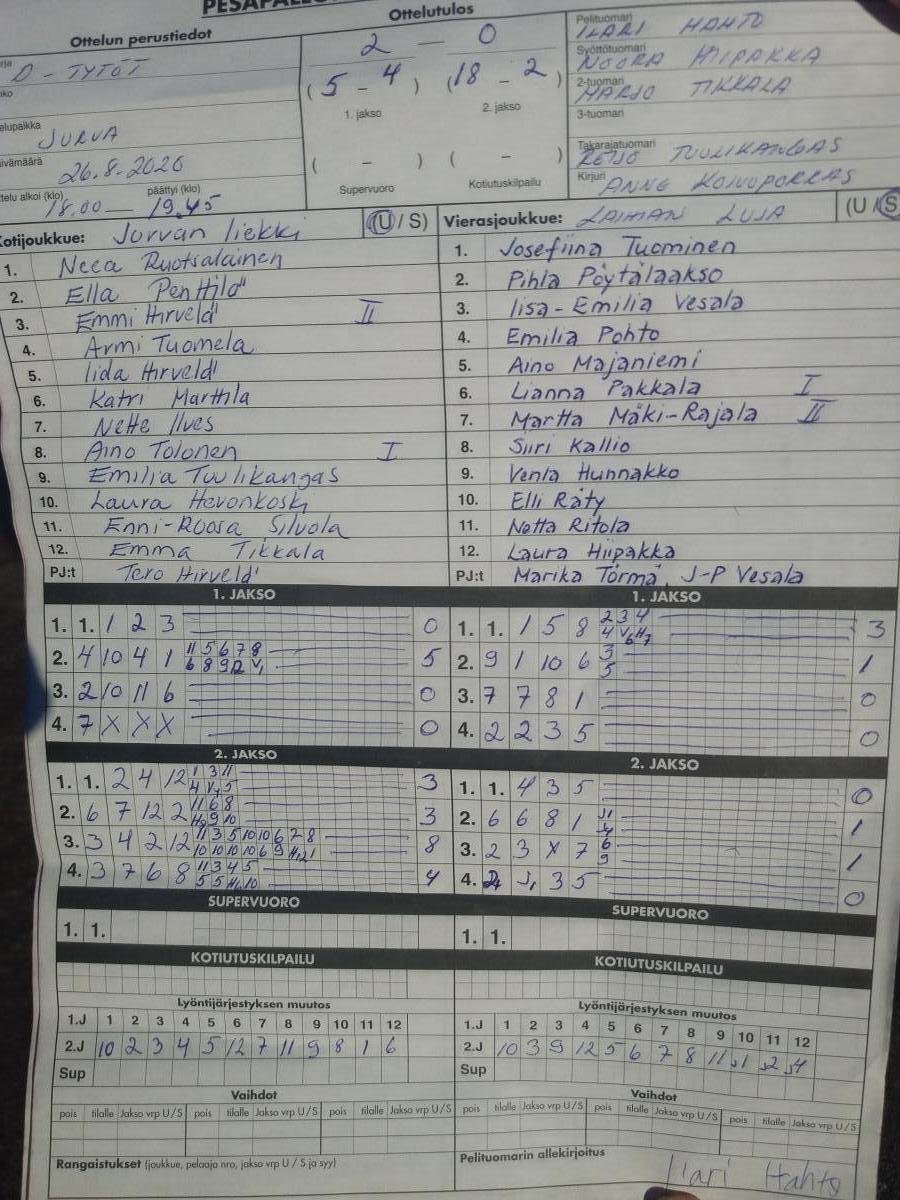 Ottelun perustiedot
Ottelutulos
D - TYTÖT
2 - 0
( 5 - 4 ) ( 18 - 2 )
1. jakso 2. jakso
JURVA
26.8.2020
päättyi (klo)
18.00 — 19.45
( - ) ( - )
Supervuoro Kotiutuskilpailu
Pelituomari
ILARI HAHTO
Syöttötuomari
NOORA HIIPAKKA
2-tuomari
MARJO TIKKALA
3-tuomari
Takarajatuomari
REIJO TUULIKANGAS
Kirjuri
ANNE KOIVUPORRAS
Kotijoukkue: Jurvan liekki (U / S)
1. Neea Ruotsalainen
2. Ella Penttilä
3. Emmi Hirvelä II
4. Armi Tuomela
5. Iida Hirvelä
6. Katri Marttila
7. Nette Ilves
8. Aino Tolonen I
9. Emilia Tuulikangas
10. Laura Hevonkoski
11. Enni-Roosa Silvola
12. Emma Tikkala
PJ:t Tero Hirvelä
Vierasjoukkue: LAIHIAN LUJA (U / S)
1. Josefiina Tuominen
2. Pihla Pöytälaakso
3. Iisa-Emilia Vesala
4. Emilia Pohto
5. Aino Majaniemi
6. Lianna Pakkala I
7. Martta Mäki-Rajala II
8. Siiri Kallio
9. Venla Hunnakko
10. Elli Räty
11. Netta Ritola
12. Laura Hiipakka
PJ:t Marika Törmä, J-P Vesala
1. JAKSO
1. 1. 1 2 3 0
2. 4 10 4 1 11 5 6 7 8 5
6 8 9 12 V1
3. 2 10 11 6 0
4. 7 X X X 0
1. JAKSO
1. 1. 1 5 8 2 3 4 3
4 V6 H7
2. 9 1 10 6 3 1
5
3. 7 7 8 1 0
4. 2 2 3 5 0
2. JAKSO
1. 1. 2 4 12 1 3 11 3
4 V5 5
2. 6 7 12 2 11 6 8 3
9 10
3. 3 4 2 12 11 3 5 10 10 6 7 8 8
10 10 10 10 6 9
4. 3 7 6 8 11 3 4 5 4
5 5 10
2. JAKSO
1. 1. 4 3 5 0
2. 6 6 8 1 J1 1
J4
3. 2 3 X 7 6 1
9
4. J1 3 5 0
SUPERVUORO
1. 1.
SUPERVUORO
1. 1.
KOTIUTUSKILPAILU
KOTIUTUSKILPAILU
Lyöntijärjestyksen muutos
1.J 1 2 3 4 5 6 7 8 9 10 11 12
2.J 10 2 3 4 5 12 7 11 9 8 1 6
Sup
Lyöntijärjestyksen muutos
1.J 1 2 3 4 5 6 7 8 9 10 11 12
2.J 10 3 9 12 5 6 7 8 11 J1 J2 J4
Sup
Vaihdot
pois tilalle Jakso vrp U/S pois tilalle Jakso vrp U/S pois tilalle Jakso vrp U/S
Vaihdot
pois tilalle Jakso vrp U/S pois tilalle Jakso vrp U/S pois tilalle Jakso vrp U/S
Rangaistukset (joukkue, pelaaja nro, jakso vrp U / S ja syy)
Pelituomarin allekirjoitus
Ilari Hahto